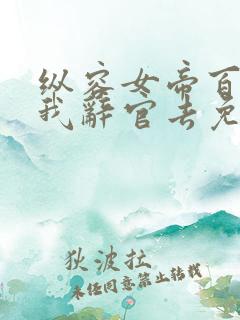 纵容女帝百
我辞官去免
狄波拉
未经同意禁止转载